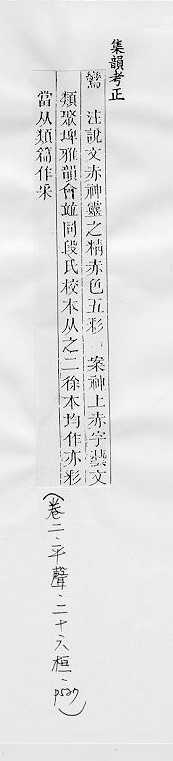 集韻考正
鸞 注說文赤神靈之精赤色五彩 案神上赤字藝文
類聚埤雅韻會並同段氏校本从之二徐本均作亦彩
當从類篇作采
(卷二·平聲·二十六桓·p527)